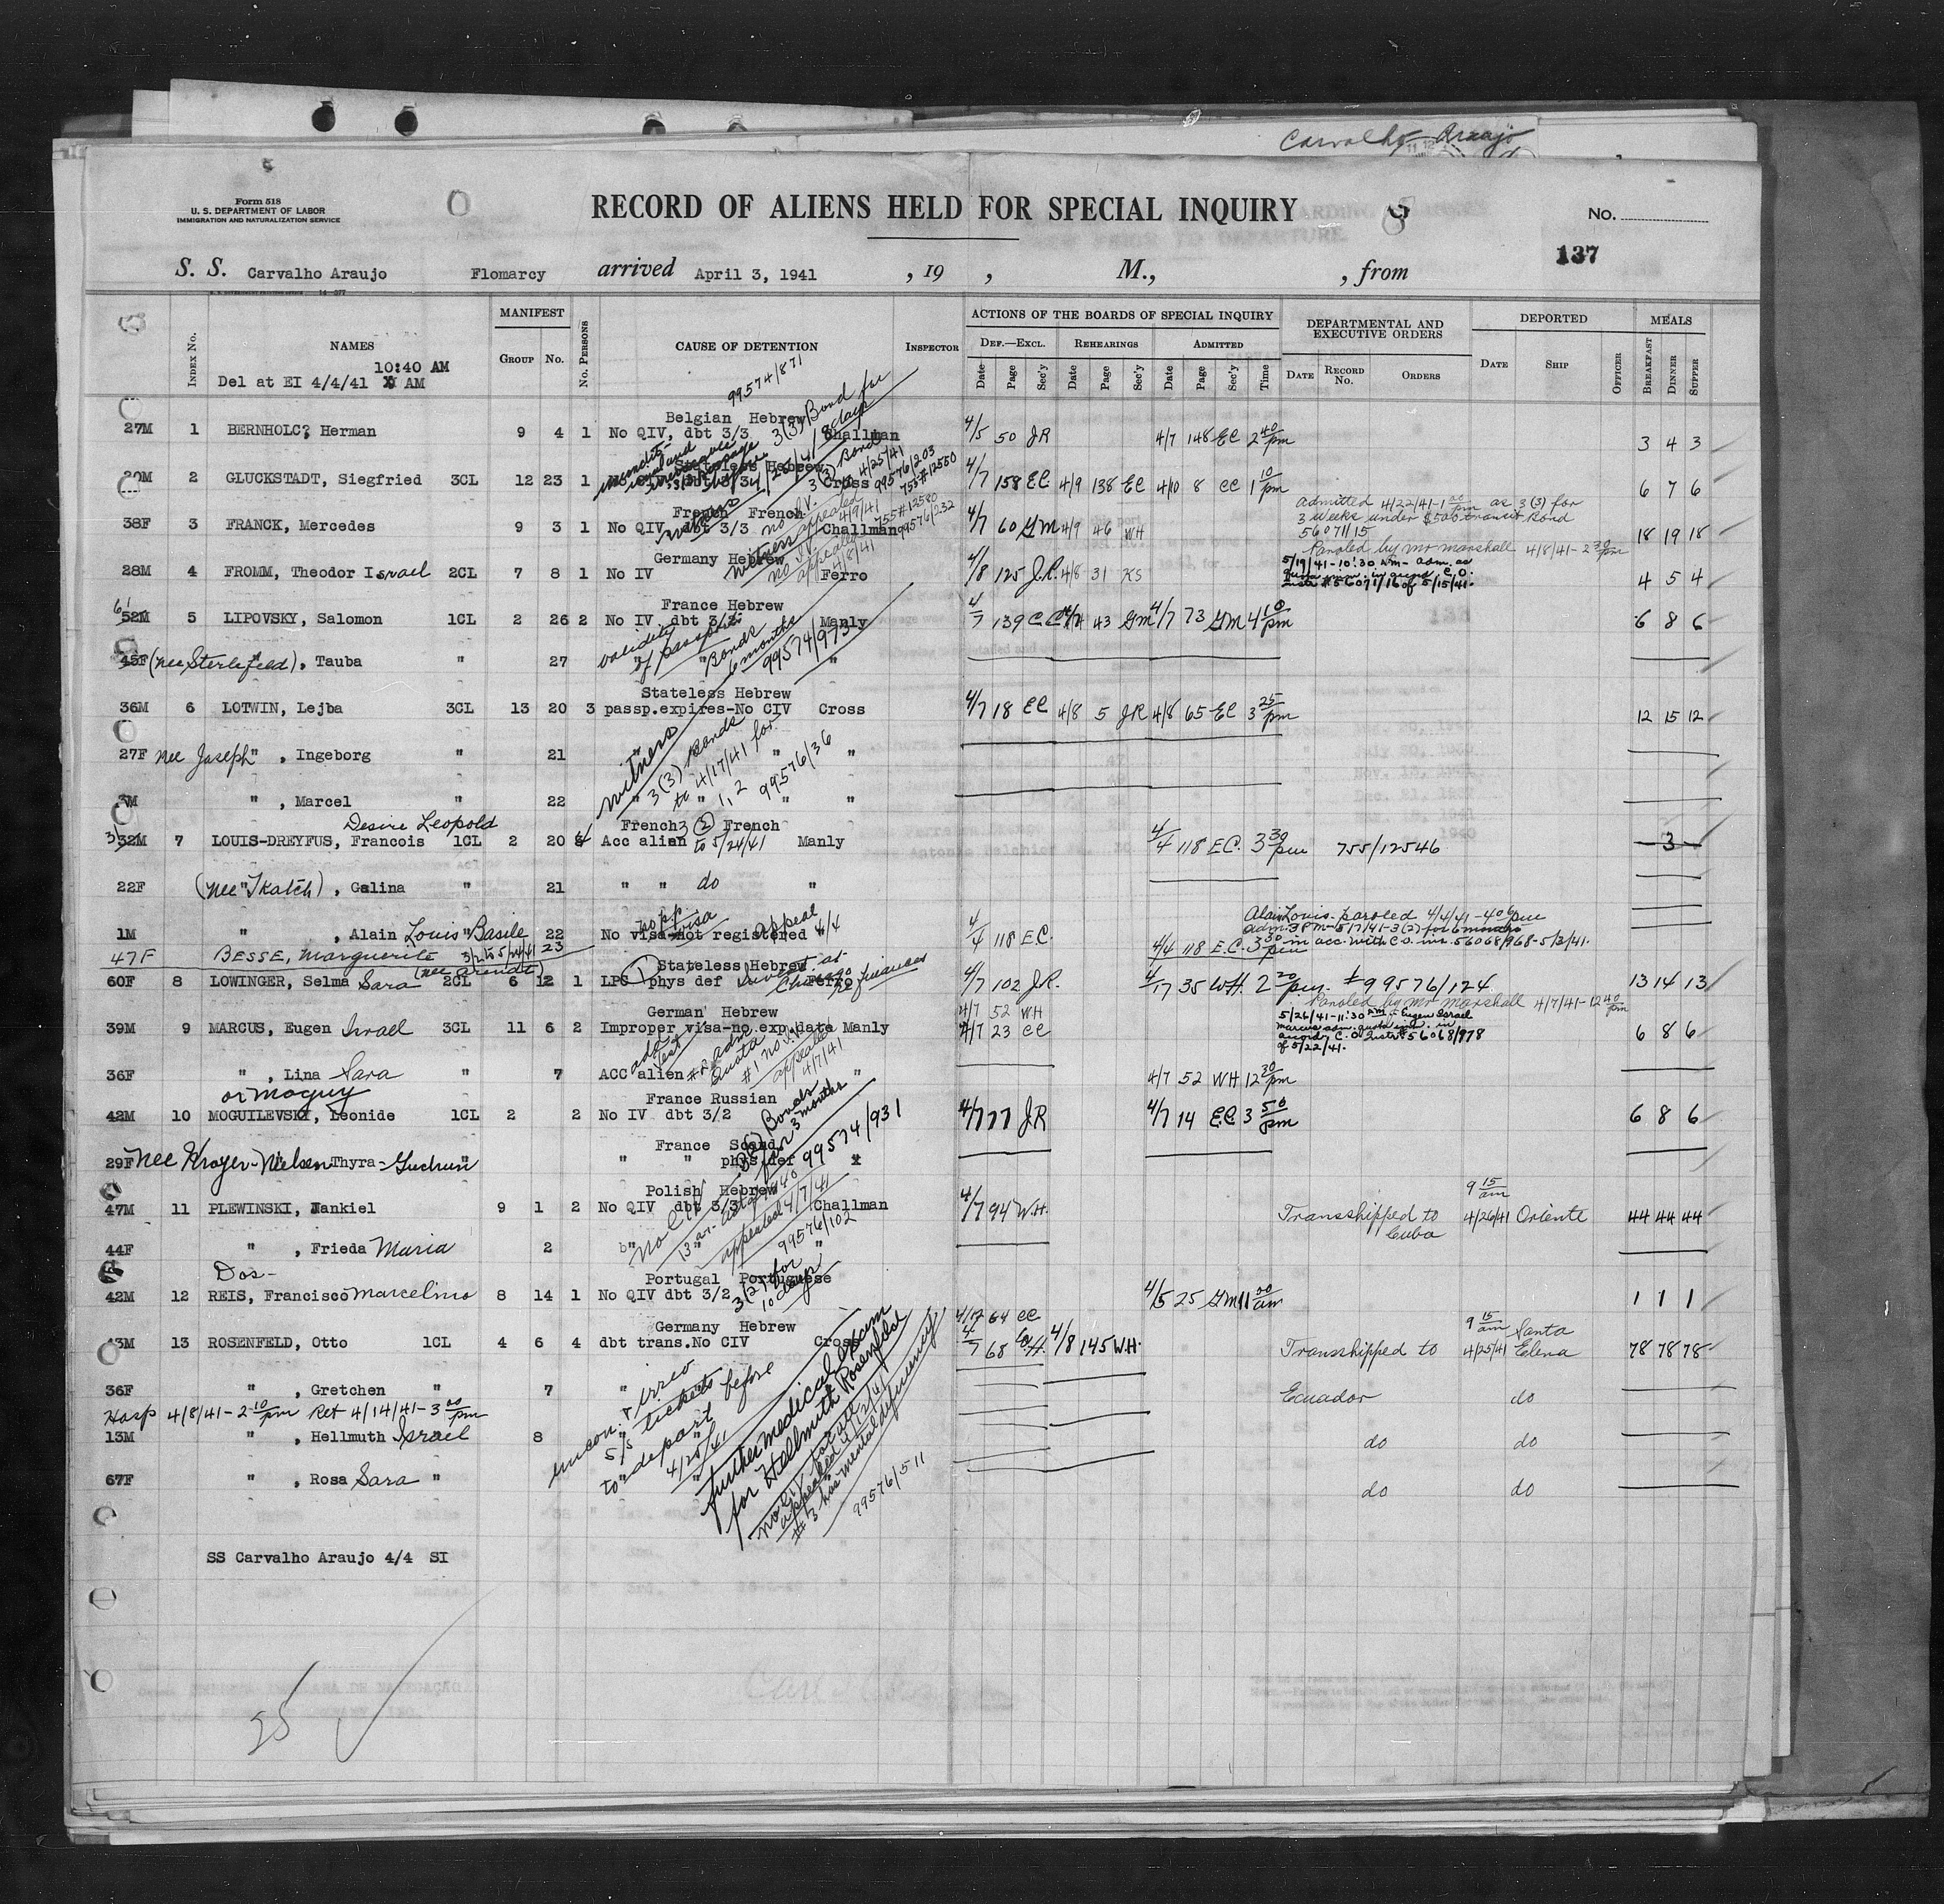 Carvalho Araujo
Form 518
U. S. DEPARTMENT OF LABOR
IMMIGRATION AND NATURALIZATION SERVICE
RECORD OF ALIENS HELD FOR SPECIAL INQUIRY
8
No.
137
S. S. Carvalho Araujo Flomarcy arrived April 3, 1941 , 19 , M., , from
Index No.
NAMES
MANIFEST
Group No.
No. Persons
CAUSE OF DETENTION
Inspector
ACTIONS OF THE BOARDS OF SPECIAL INQUIRY
Def.—Excl. Rehearings Admitted
Date Page Sec'y Date Page Sec'y Date Page Sec'y Time
DEPARTMENTAL AND EXECUTIVE ORDERS
Date Record No. Orders
DEPORTED
Date Ship Officer
MEALS
Breakfast Dinner Supper
10:40 AM
Del at EI 4/4/41 AM
99574/871
3(3) Bond for
Belgian Hebrew
27M 1 BERNHOLC, Herman 9 4 1 No QIV, dbt 3/3 Challman 4/5 50 JR 4/7 148 EC 2 40 pm 3 4 3
Stateless Hebrew
20M 2 GLUCKSTADT, Siegfried 3CL 12 23 1 Cross 4/7 158 EC 4/9 138 EC 4/10 8 CC 1 10 pm 6 7 6
99576/203
755#12550
French French
admitted 4/22/41-1 00 pm as 3(3) for
3 weeks under $500 transit Bond
56071/15
38F 3 FRANCK, Mercedes 9 3 1 No QIV dbt 3/3 Challman 4/7 60 GM 4/9 46 WH 18 19 18
755#12580
99576/232
Germany Hebrew
Paroled by Mr Marshall 4/8/41-2 30 pm
28M 4 FROMM, Theodor Israel 2CL 7 8 1 No IV Ferro 4/8 125 J.R. 4/8 31 KS 4 5 4
5/19/41-10:30 AM- adm. as
#56071/16 of 5/15/41.
France Hebrew
61 52M 5 LIPOVSKY, Salomon 1CL 2 26 2 No IV dbt 3/3 Manly 4/7 139 CC 43 GM 4/7 73 GM 4 10 pm 6 8 6
validity of passports
Bonds 6 months
99574/973
45F (nee Sterlefeld), Tauba " 27 " "
Stateless Hebrew
36M 6 LOTWIN, Lejba 3CL 13 20 3 passp.expires-No CIV Cross 4/7 18 EC 4/8 5 JR 4/8 65 EC 3 25 pm 12 15 12
27F nee Joseph " , Ingeborg " 21 " " "
witness
3(3) Bonds
to 4/17/41 for
1, 2 99576/36
3M " , Marcel " 22 " " " "
Desire Leopold
French 3 (2) French
31 32M 7 LOUIS-DREYFUS, Francois 1CL 2 20 Acc alien to 5/24/41 Manly 4/4 118 E.C. 3 30 pm 755/12546 3
22F (nee Tkatch), Galina " 21 " " do "
no p.p. visa appeal 4/4
1M " , Alain Louis Basile 22 No visa-not registered 4/4 118 E.C.
Alain Louis- paroled 4/4/41-4 06 pm
adm. 3PM-5/7/41-3(2) for 6 months
in acc. with C.O. ins. 56068/968-5/3/41.
47F BESSE, Marguerite 3/2 to 5/24/41 23 4/4 118 E.C. 3 30 pm
(nee Arendt)
Stateless Hebrew
60F 8 LOWINGER, Selma Sara 2CL 6 12 1 LPC phys def Ferro 4/7 102 J.R. 4/17 35 WH. 2 20 pm. #99576/124 13 14 13
Invest. at Chicago re finances
German Hebrew
4/7 52 WH
Paroled by Mr Marshall 4/7/41-12 40 pm
39M 9 MARCUS, Eugen Israel 3CL 11 6 2 Improper visa-no exp date Manly 4/7 23 CC 6 8 6
5/26/41-11:30 AM - Eugen Israel
Marcus adm. quota imm. in
accord. C.O. Instr. #56068/978
of 5/22/41.
#2 adm Quota
#1 no I.V.
appealed 4/7/41
36F " , Lina Sara " 7 ACC alien " 4/7 52 WH 12 30 pm
or Moguy
France Russian
42M 10 MOGUILEVSKY, Leonide 1CL 2 2 No IV dbt 3/2 4/7 77 JR 4/7 14 E.C 3 50 pm 6 8 6
Bonds for 3 months
99574/931
France Scand
29F nee Kroyer-Nielsen Thyra-Gudrun " " " phys.def
Polish Hebrew
47M 11 PLEWINSKI, Jankiel 9 1 2 No QIV dbt 3/3 Challman 4/7 94 W.H. Transshipped to Cuba 9 15 am 4/26/41 Oriente 44 44 44
appealed 4/7/41
99576/102
44F " , Frieda Maria 2 " "
Dos-
Portugal Portuguese
42M 12 REIS, Francisco Marcelino 8 14 1 No QIV dbt 3/2 4/5 25 GM 11 00 am 1 1 1
3(2) for 10 days
Germany Hebrew
4/12 64 CC
43M 13 ROSENFELD, Otto 1CL 4 6 4 dbt trans.No CIV Cross 4/7 68 W.H. 4/8 145 W.H. Transshipped to 9 15 am 4/25/41 Santa Elena 78 78 78
36F " , Gretchen " 7 " Ecuador do
Hosp 4/8/41-2 10 pm Ret 4/14/41-3 00 pm
13M " , Hellmuth Israel 8 do do
67F " , Rosa Sara " do do
tickets before
to depart
4/25/41
further medical exam
for Hellmuth Rosenfeld
appealed 4/12/41
#3 has mental deficiency
99576/511
SS Carvalho Araujo 4/4 SI
25